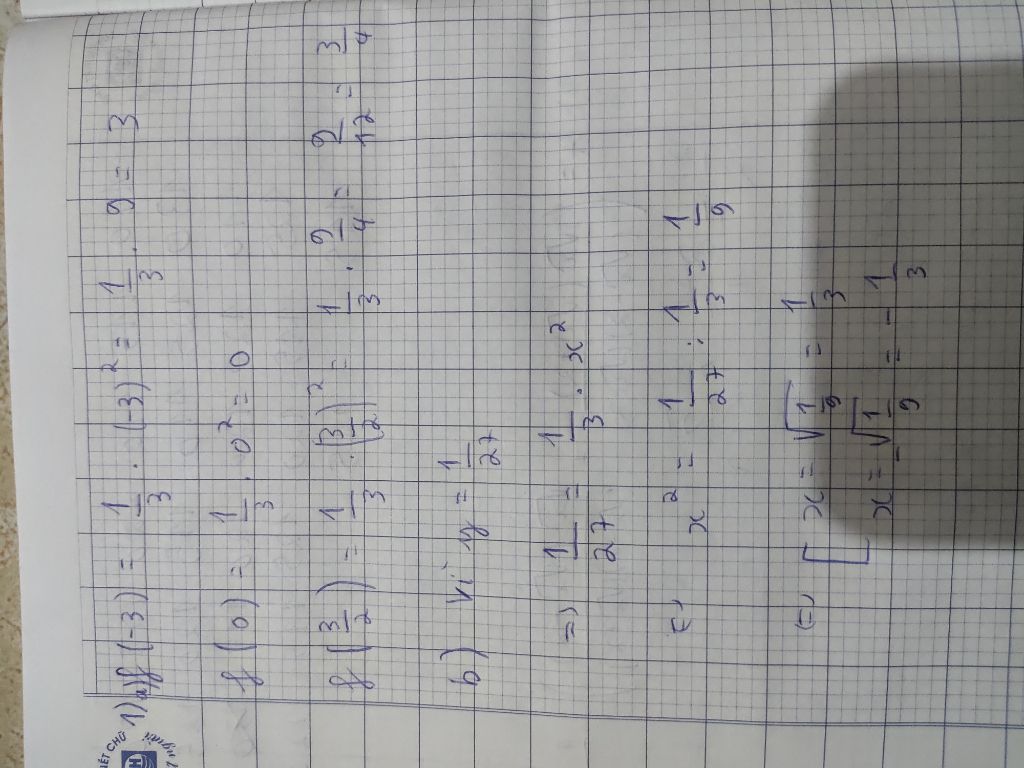 1) a) f(-3) = 1/3 . (-3)² = 1/3 . 9 = 3
f(0) = 1/3 . 0² = 0
f(3/2) = 1/3 . (3/2)² = 1/3 . 9/4 = 9/12 = 3/4
b) Vì y = 1/27
=> 1/27 = 1/3 . x²
(=) x² = 1/27 : 1/3 = 1/9
(=) [ x = √1/9 = 1/3
x = -√1/9 = -1/3